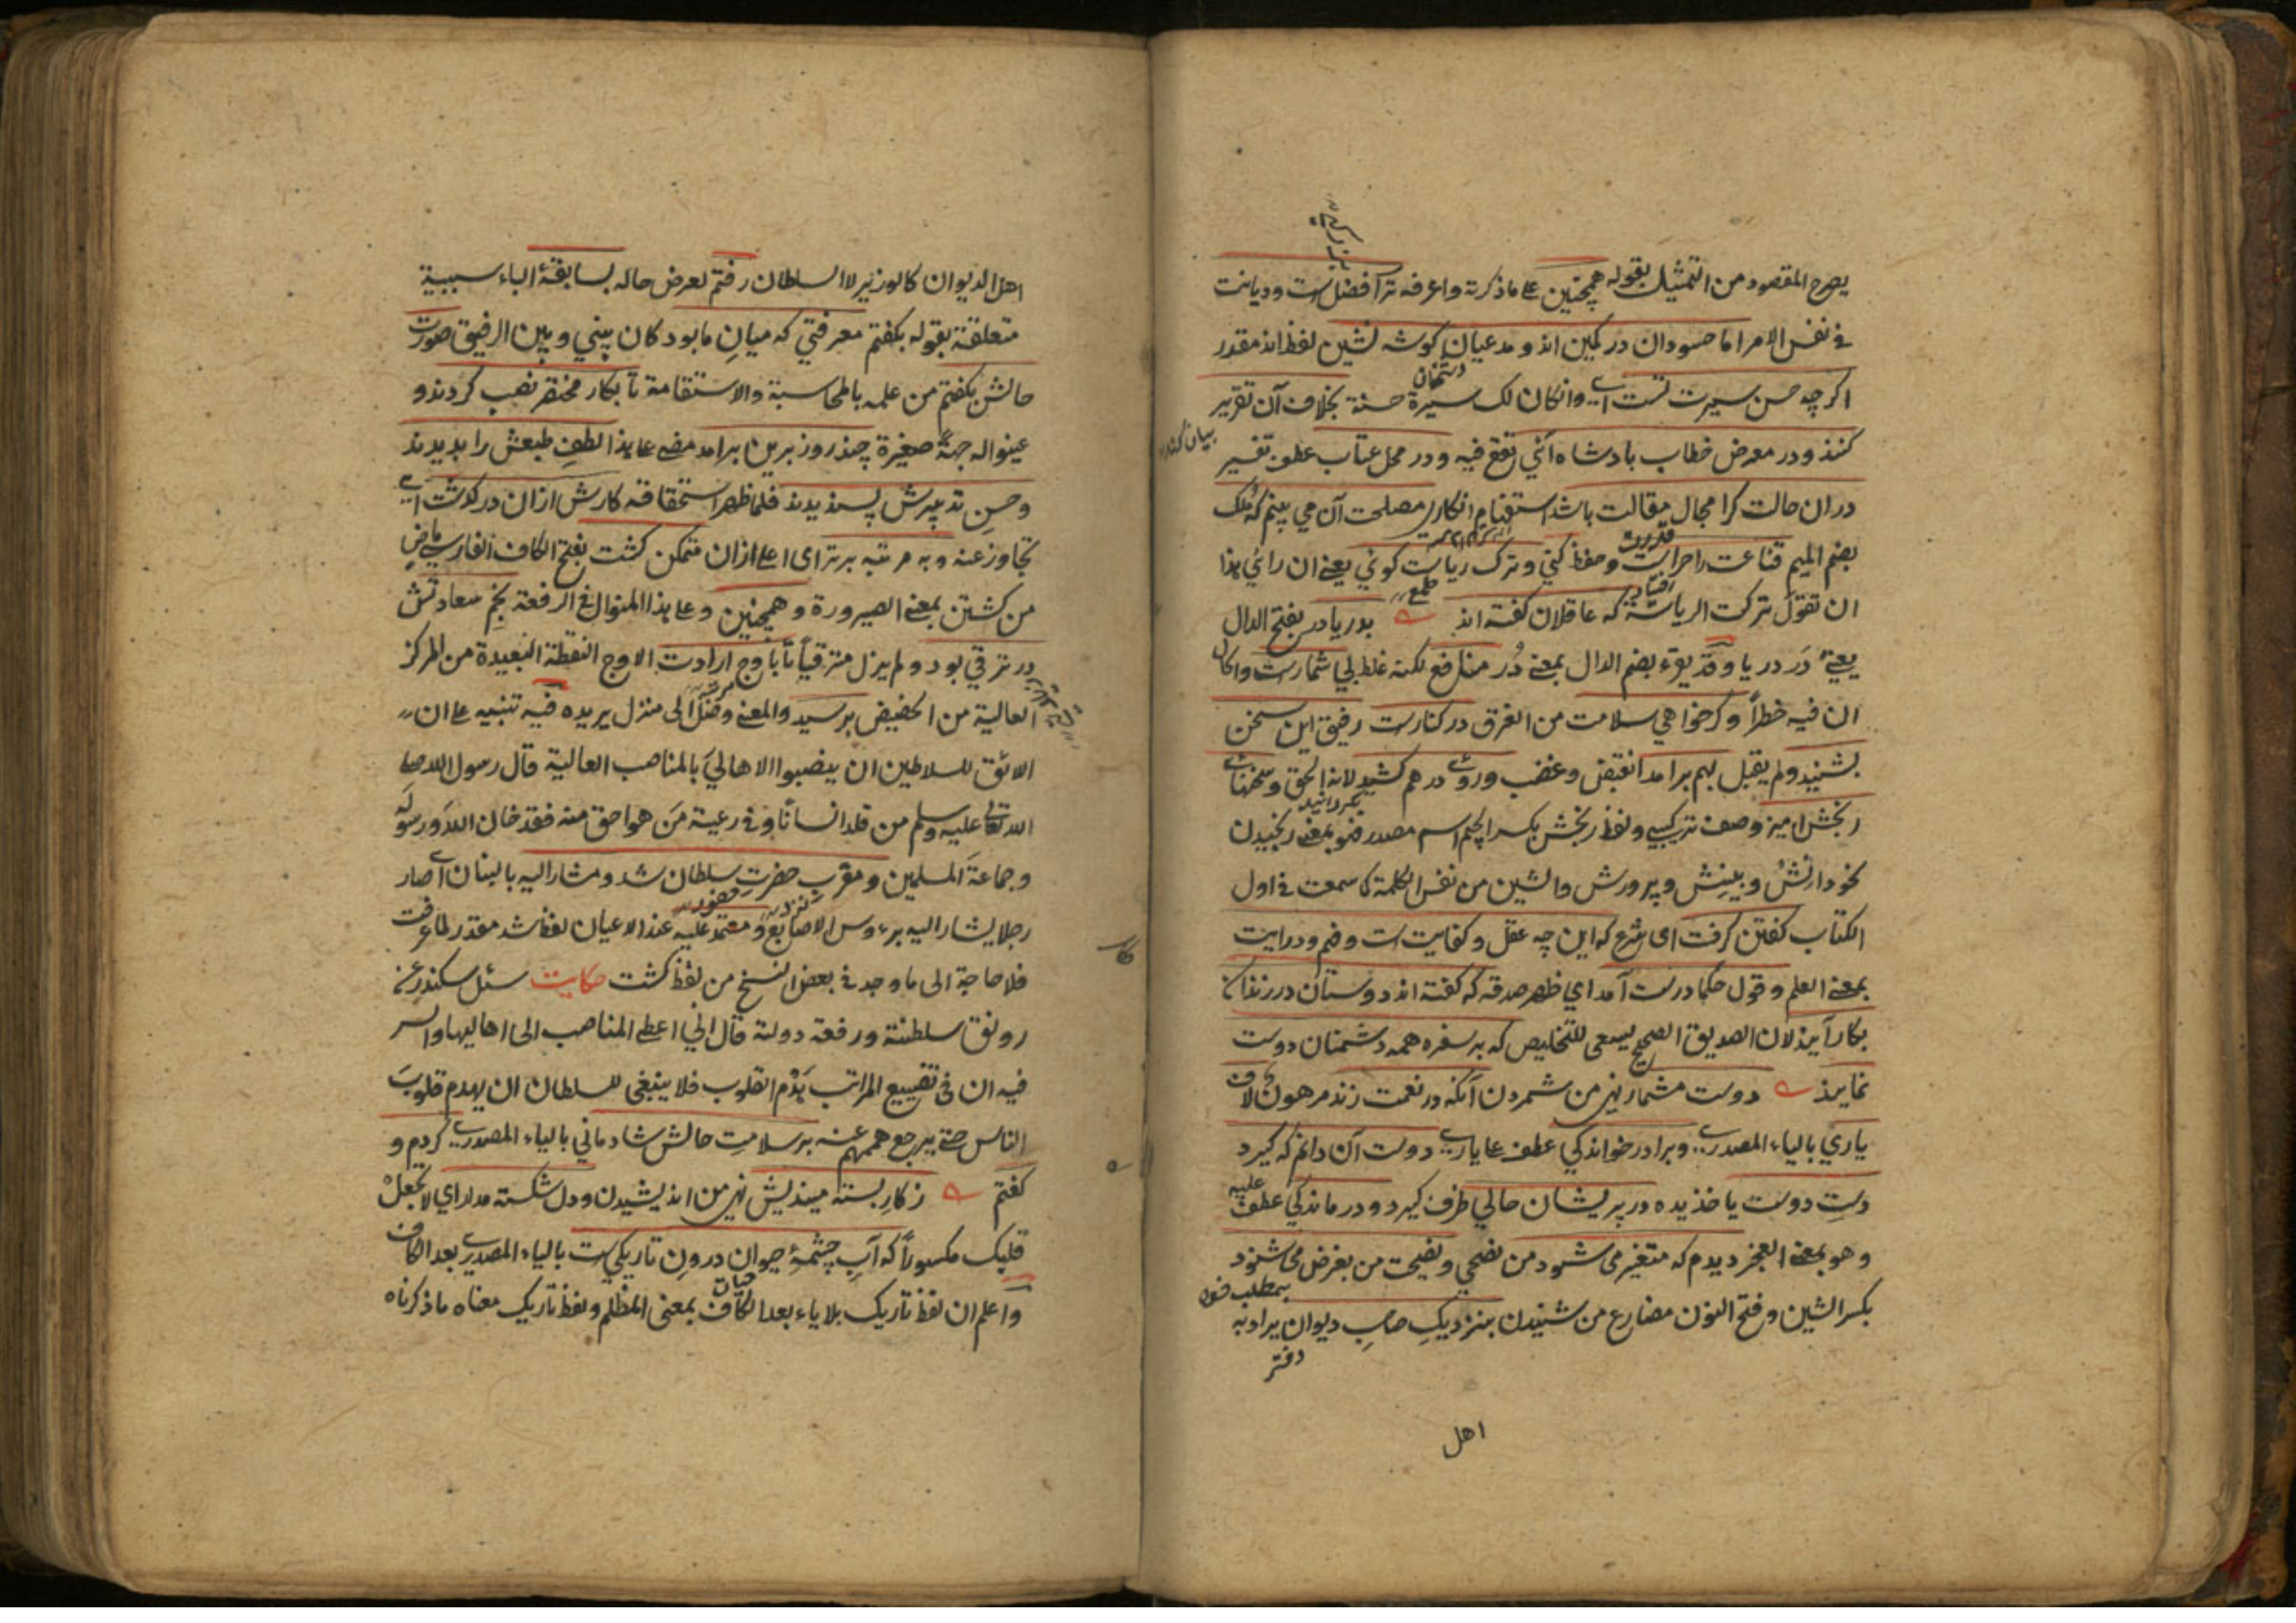 يصرح المقصود من التمثيل بقوله همچنين على ما ذكرته واعرفه ترا فضل است وديانت
في نفس الامر اما حسودان در كمين اند و مدعيان كوشه نشين لفظ اند مقدر
دشمنان
اكر چه حسن سيرت تست اى وانكان لك سيرة حسنة بخلاف آن تقرير
كنند ودر معرض خطاب بادشاه آئى تقع فيه ودر محل عتاب عطف تفسير
دران حالت كرا مجال مقالت باشد استفهام انكارى مصلحت آن مي بينم كه ملك
بضم الميم قناعت را حراست وحفظ كني وترك رياست كوئي يعنى ان رائي هذا
ان تقول تركت الرياسة كه عاقلان كفته اند بدريا در بفتح الدال
يعنى دَر دريا وقد يقرء بضم الدال بمعنى دُر منافع لكنه غلط بي شمارست وا كان
ان فيه خطراً وكر خواهي سلامت من الغرق در كنارست رفيق اين سخن
بشنيد ولم يقبل بهم برامد انقبض وغضب وروى درهم كشيد لانه الحق وسخنهاى
رنجش اميز وصف تركيبى ولفظ رنجش بكسر الجيم اسم مصدر فهو بمعنى رنجيدن
نحو دانش وبينش وپرورش والشين من نفس الكلمة كما سمعت فى اول
الكتاب كفتن كرفت اى شرع كه اين چه عقل وكفايت است وفهم ودرايت
بمعنى العلم وقول حكما درست آمد اي ظهر صدقه كه كفته اند دوستان در زندان
بكار آيند لان الصديق الصحيح يسعى للتخليص كه بر سفره همه دشمنان دوست
نمايند دوست مشمار نهى من شمردن آنكه در نعمت زند مرهون لاف
ياري بالياء المصدرى وبرادر خواندكي عطف على يارى دوست آن دانم كه كيرد
دست دوست ياخذ يده در پريشان حالي ظرف كيرد ودرماندكي عطف عليه
وهو بمعنى العجز ديدم كه متغير مى شود من نصحي ونصيحت من بغرض مى شنود
بكسر الشين وفتح النون مضارع من شنيدن بنزديك صاحب ديوان يراد به
دفتر
اهل
اهل الديوان كالوزير لا السلطان رفتم لعرض حاله بسابقهٔ الباء سببية
متعلقة بقوله بكفتم معرفتي كه ميان ما بود كان بيني وبين الرفيق صورت
حالش بكفتم من علمه بالمحاسبة والاستقامة تا بكار مختصر نصب كردند و
عينوا له جهة صغيرة چند روز برين برامد مضى على هذا لطف طبعش را بديدند
وحسن تدبيرش پسنديدند فلما ظهر استحقاقه كارش ازان دركذشت اى
تجاوز عنه وبه مرتبه برتر اى اعلى ازان متمكن كشت بفتح الكاف الفارسى ماض
من كشتن بمعنى الصيرورة وهمچنين وعلى هذا المنوال فى الرفعة نجم سعادتش
در ترقي بود ولم يزل مترقياً تا باوج ارادت الاوج النقطة البعيدة من المركز
العالية من الحضيض برسيد والمعنى وصل الى منزل يريده فيه تنبيه على ان
الائق للسلاطين ان ينصبوا الاهالي بالمناصب العالية قال رسول الله صلى
الله تعالى عليه وسلم من قلد انسانًا وفى رعيته مَن هو احق منه فقد خان الله ورسوله
وجماعة المسلمين ومقرب حضرت سلطان شد ومشار اليه بالبنان اى صار
رجلا يشار اليه برءوس الاصابع و معتمد عليه عند الاعيان لفظ شد مقدر لما عرفت
فلا حاجة الى ما وجد فى بعض النسخ من لفظ كشت حكايت سئل سكندر عن
رونق سلطنته ورفعة دولته قال انى اعطى المناصب الى اهاليها والسر
فيه ان في تضييع المراتب هدم القلوب فلا ينبغى للسلطان ان يهدم قلوبَ
الناس حتى يرجع هممهم عنه بر سلامت حالش شادماني بالياء المصدرى كردم و
كفتم ز كار بسته مينديش نهى من انديشيدن ودل شكسته مدار اي لا تجعل
قلبك مكسوراً كه آب چشمهٔ حيوان درون تاريكي ست بالياء المصدرى بعد الكاف
واعلم ان لفظ تاريك بلا ياء بعد الكاف بمعنى المظلم ولفظ تاريك معناه ما ذكرناه